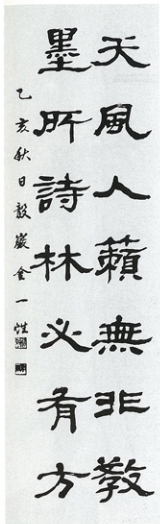 天風人籟無非敎
墨所詩林必有方
乙亥秋日毅巖金一